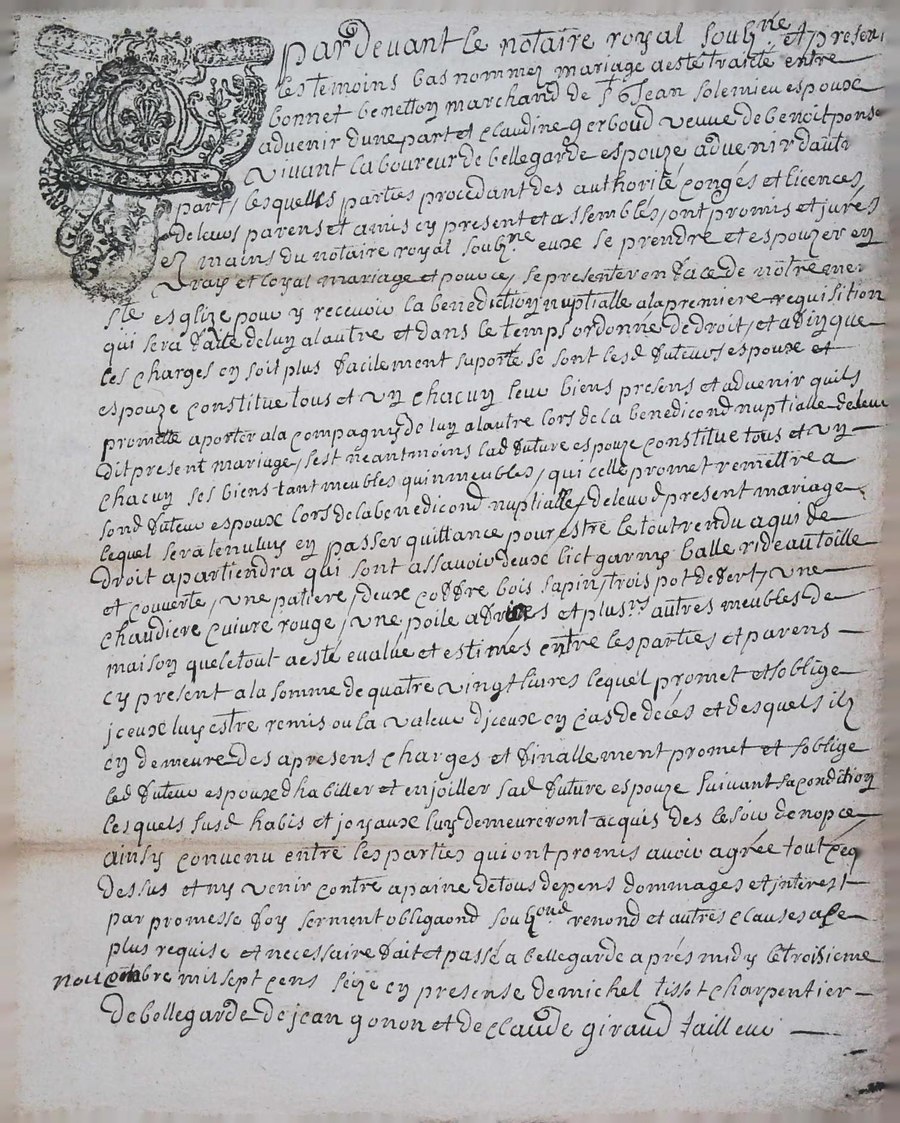 LYON
pardevant le notaire royal soubné et presents
les temoins bas nommez mariage aesté traité entre
bonnet benetton marchand de St Jean solemieu espoux
advenir dune part et claudine gerboud veuve de benoit ponse
vivant laboureur de bellegarde espouze advenir dautr
part, lesquelles parties procedant des authorité congés et licences
de leurs parens et amis cy present et assemblés, ont promis et jurés
ez mains du notaire royal soubné eux se prendre et espouzer en
vray et loyal mariage et pour ce, se presenter en face de nôtre mer
ste esglize pour y recevoir la benediction nuptialle ala premiere requisition
qui sera faite de luy alautre et dans le temps ordonné de droit, et afin que
les charges en soit plus facilement suporté se sont lesd futeurs espoux et
espouze constitue tous et un chacun leur biens presens et advenir quils
promette aporter ala compagnis de luy alautre lors de la benedicond nuptialle de leur
dit present mariage, sest neantmoins lad future espouze constitue tous et un
chacun ses biens tant meubles quinmeubles, qui celle promet remettre a
sond futeur espoux lors de la benedicond nuptialle, de leurd present mariage
lequel sera tenu luy en passer quittance pour estre le tout rendu a qui de
droit apartiendra qui sont assavoir deux lict garnis balle rideau toille
et couverte, une patiere, deux coffre bois sapin, trois pot de fert, une
chaudiere cuivre rouge, une poile a et plusrs autres meubles de
maison que le tout a esté evalué et estimés entre les parties et parens
cy present ala somme de quatre vingt livres lequel promet et soblige
jceux luy estre remis ou la valeur djceux en cas de décés et desquels il
en demeure des apresent charges et finallement promet et soblige
led futeur espoux dhabiller et enjoiller sad future espouze suivant sa condition
lesquels susd habis et joyaux luy demeureront acquis des le soir de nopce
ainsy convenu entre les parties qui ont promis avoir agrée tout ceq
dessus et ny venir contre apaine de tous depens dommages et interest
par promesse foy serment obligaond soubond renond et autres clauses a ce
plus requise et necessaire fait et passé a bellegarde aprés midy le troisieme
novembre mil sept cens seize en presense de michel tissot charpentier
de bellegarde de jean gonon et de claude giraud tailleur